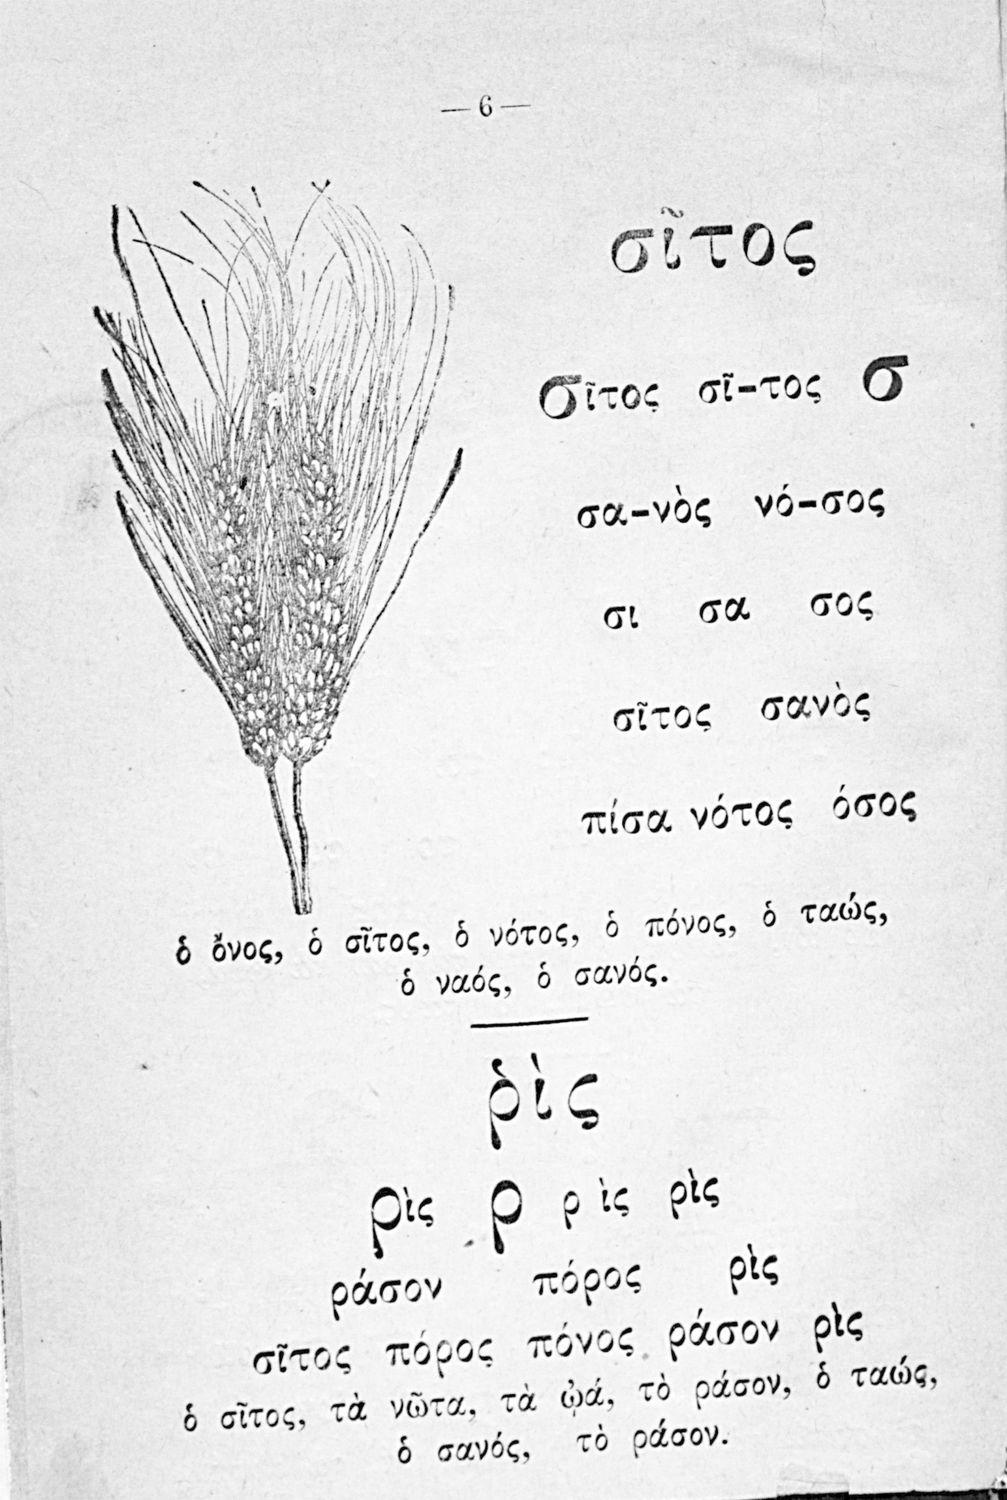 — 6 —
σῖτος
σῖτος σῖ-τος σ
σα-νὸς νό-σος
σι σα σος
σῖτος σανὸς
πίσα νότος όσος
ὁ ὄνος, ὁ σῖτος, ὁ νότος, ὁ πόνος, ὁ ταώς,
ὁ ναός, ὁ σανός.
ῥὶς
ρὶς ρ ρ ὶς ρὶς
ράσον πόρος ρὶς
σῖτος πόρος πόνος ράσον ρὶς
ὁ σῖτος, τὰ νῶτα, τὰ ᾠά, τὸ ράσον, ὁ ταώς,
ὁ σανός, τὸ ράσον.